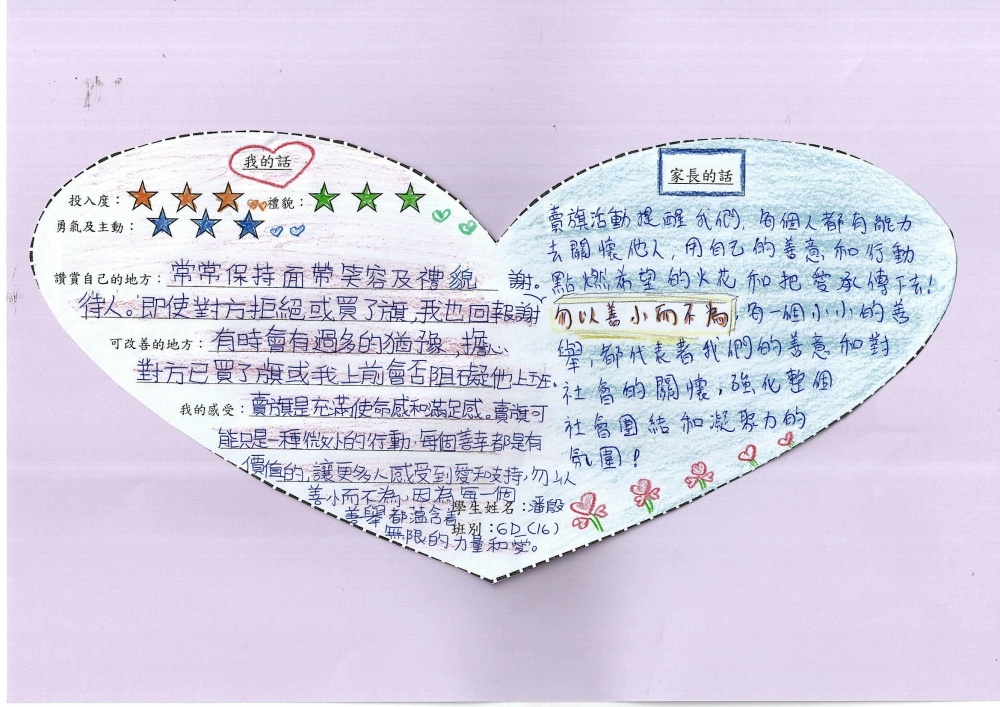 我的話
投入度：
禮貌：
勇氣及主動：
讚賞自己的地方：常常保持面帶笑容及禮貌
待人。即使對方拒絕或買了旗，我也回報謝
謝。
可改善的地方：有時會有過多的猶豫，擔心
對方已買了旗或我上前會否阻礙他上班。
我的感受：賣旗是充滿使命感和滿足感。賣旗可
能只是一種微小的行動，每個善幸都是有
價值的，讓更多人感受到愛和支持，勿以
善小而不為，因為每一個
善舉都蘊含着
無限的力量和愛。
學生姓名：潘殷
班別：6D（16）
家長的話
賣旗活動提醒我們，每個人都有能力
去關懷他人，用自己的善意和行動
點燃希望的火花和把愛承傳下去！
勿以善小而不為，每一個小小的善
舉，都代表着我們的善意和對
社會的關懷，強化整個
社會團結和凝聚力的
氛圍！